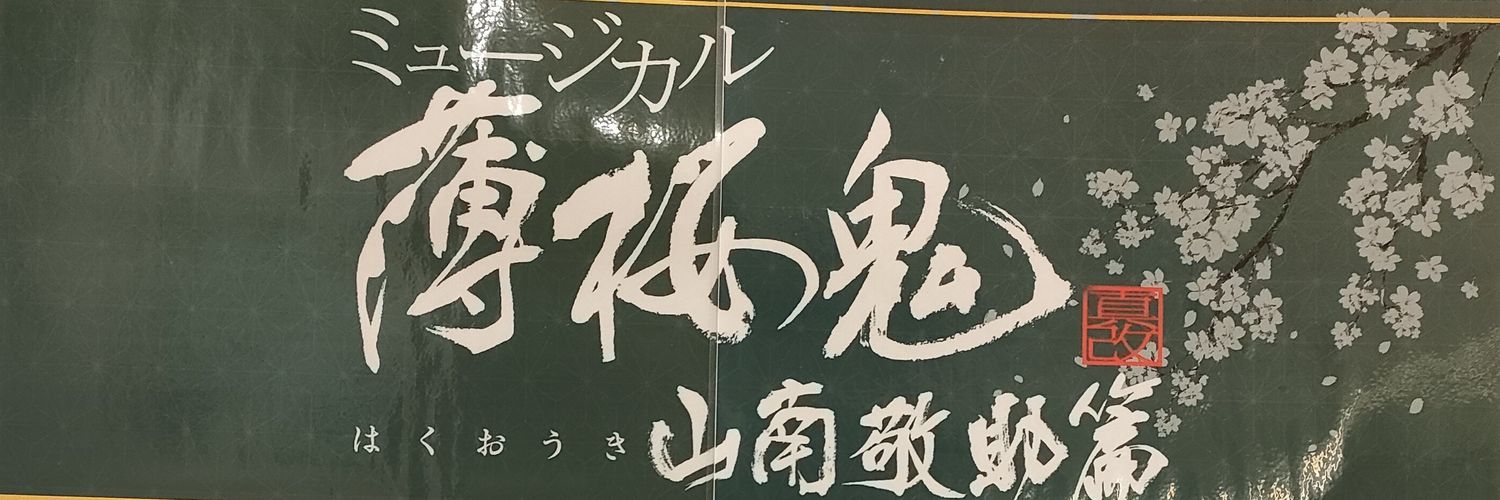 ミュージカル
薄桜鬼
真改
はくおうき
山南敬助篇